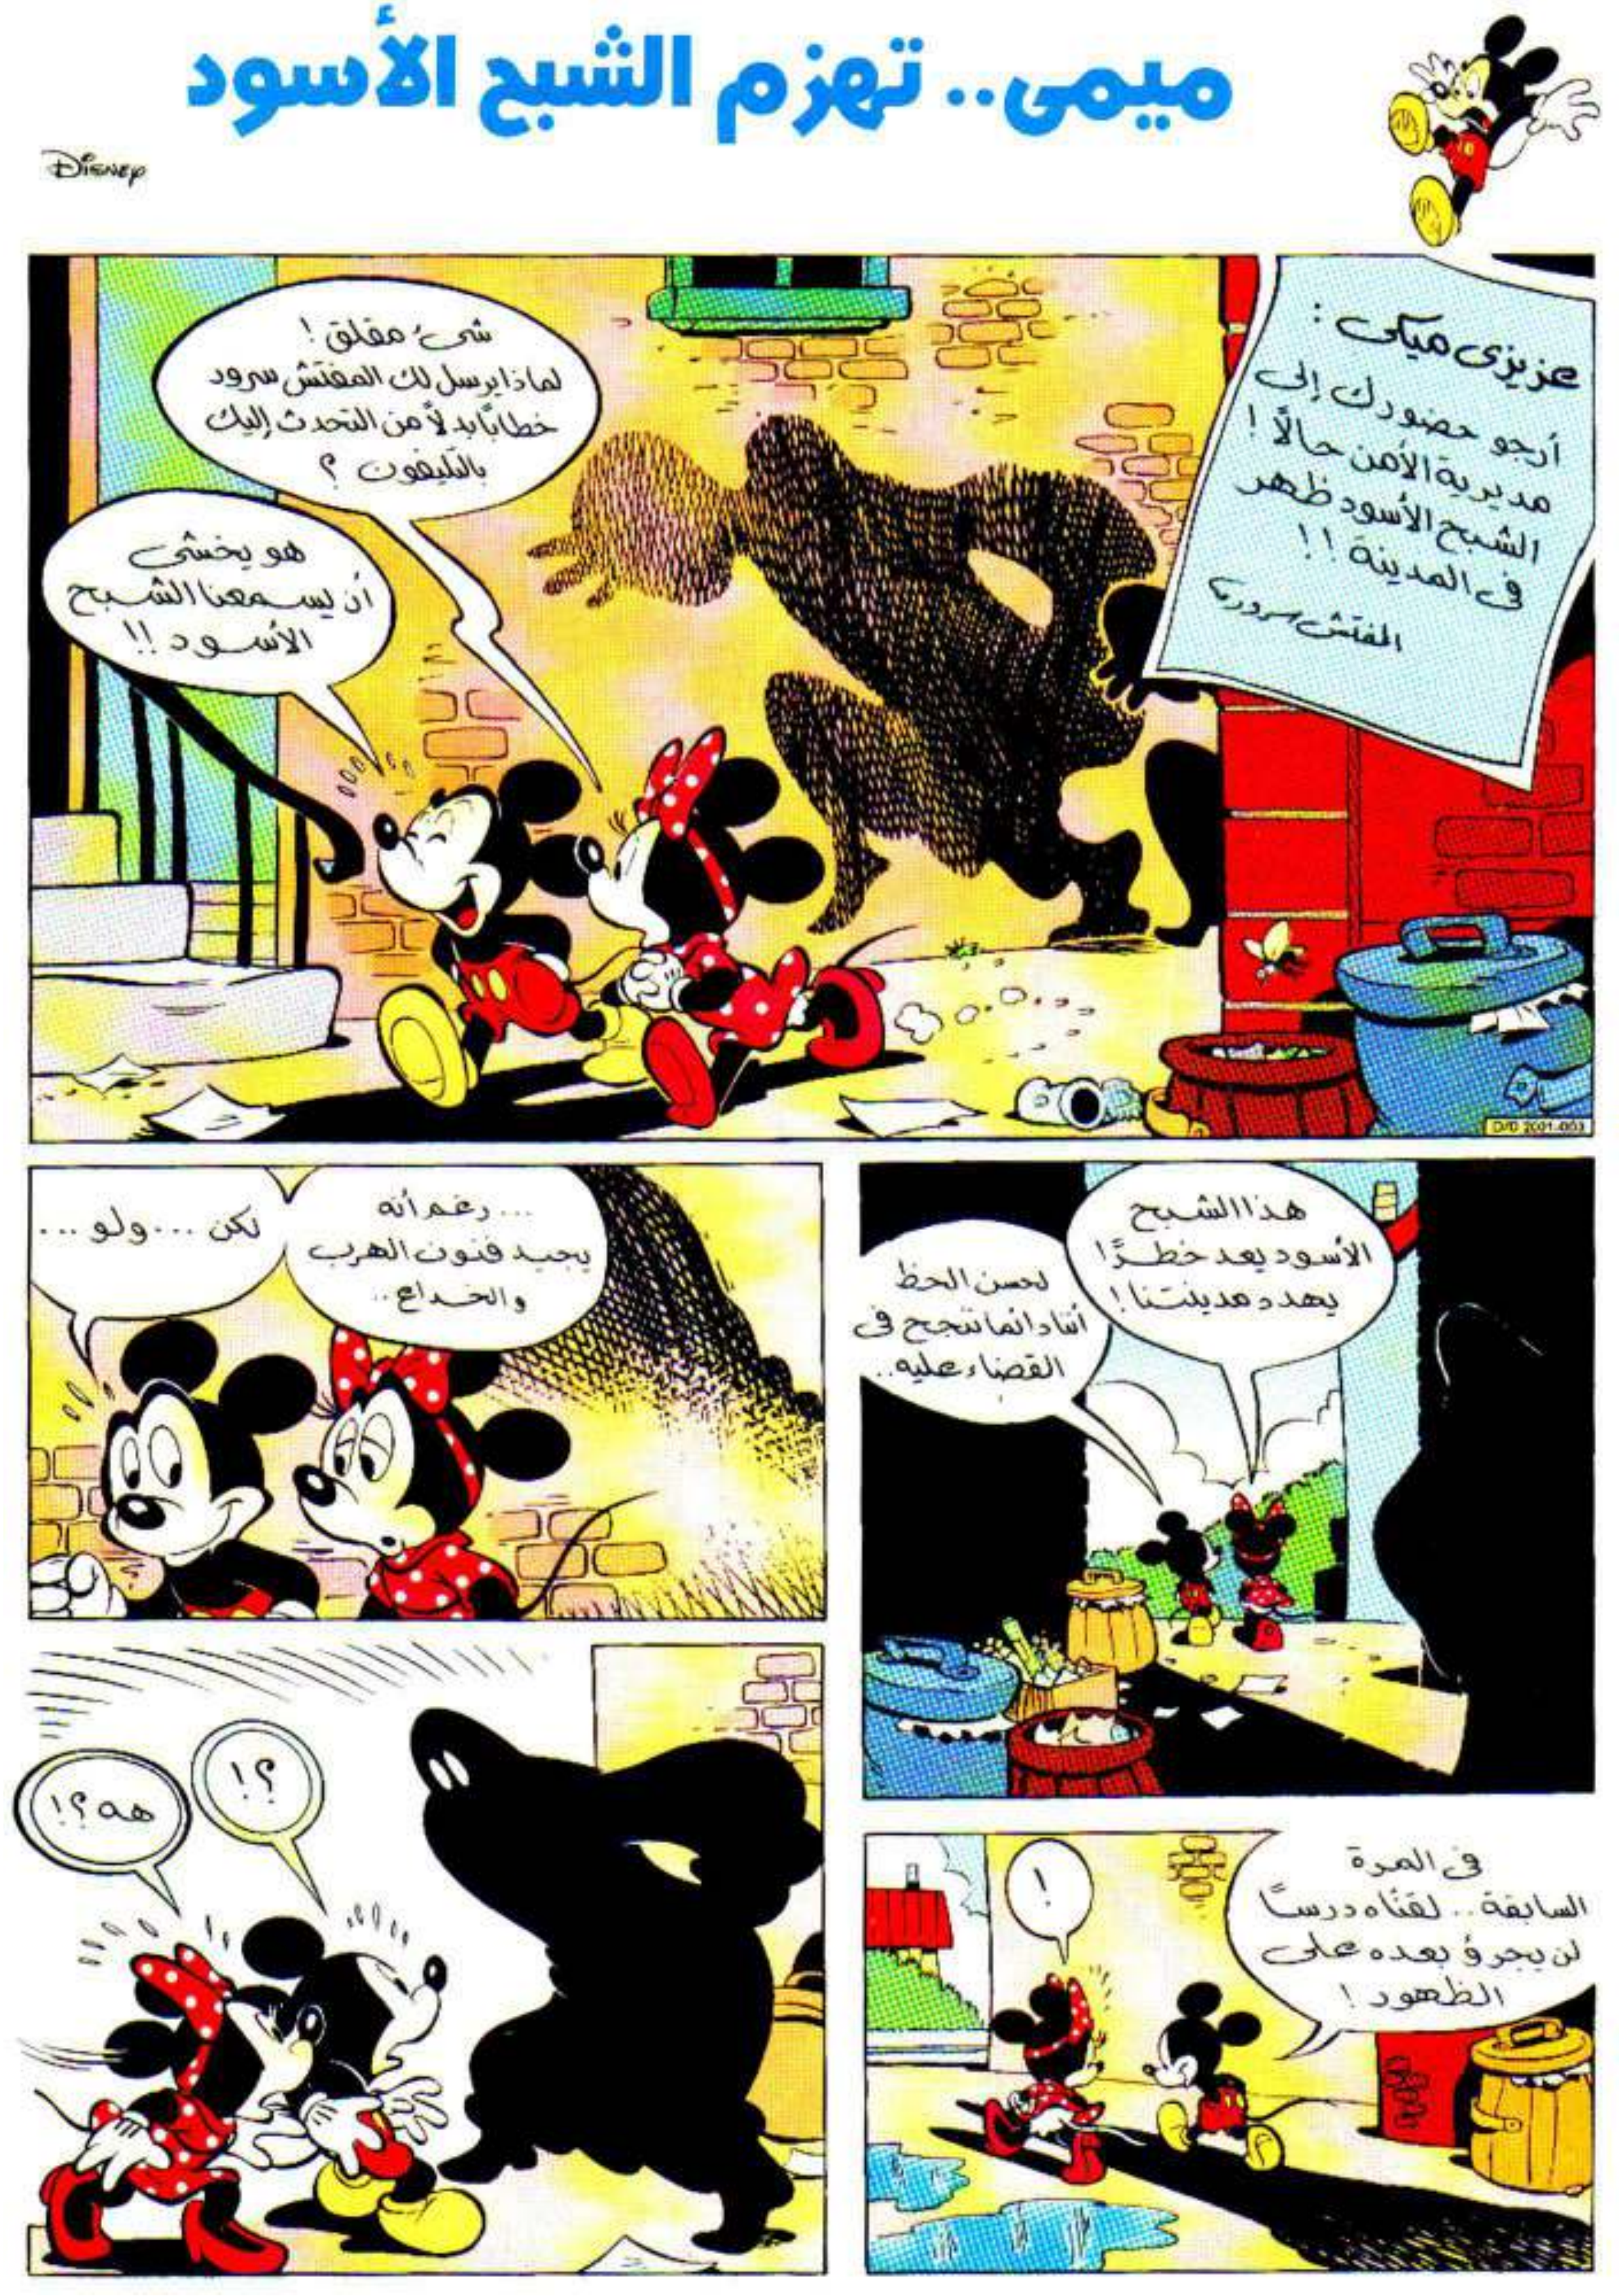 ميمى.. تهزم الشبح الأسود
DISNEY
عزيزى ميكى :
أرجو حضورك إلى
مديرية الأمن حالاً !
الشبح الأسود ظهر
فى المدينة !!
المفتش سرور
شىء مقلق !
لماذا يرسل لك المفتش سرور
خطابًا بدلاً من التحدث إليك
بالتليفون ؟
هو يخشى
أن يسمعنا الشبح
الأسود !!
D/D 2001-003
هذا الشبح
الأسود يعد خطرًا
يهدد مدينتنا !
لحسن الحظ
أننا دائما ننجح فى
القضاء عليه..
... رغم أنه
يجيد فنون الهرب
والخداع ..
لكن ... ولو ...
فى المرة
السابقة .. لقناه درسًا
لن يجرؤ بعده على
الظهور !
!
؟!
هه ؟!